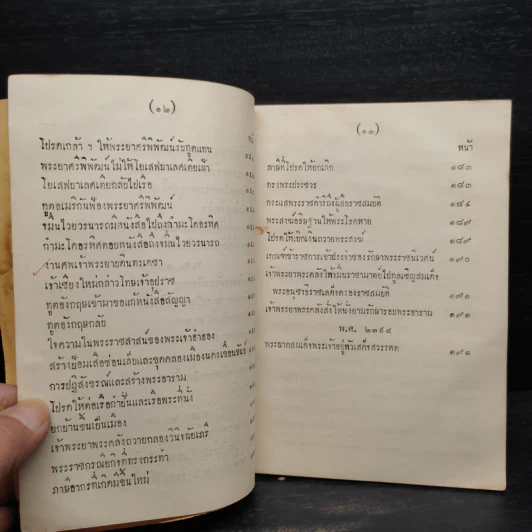 (๑๒)
โปรดเกล้า ฯ ให้พระยาศรีพิพัฒน์รับทูตแทน
พระยาศรีพิพัฒน์ไม่ให้โยเสฟบาเลศเตียเฝ้า
โยเสฟบาเลศเตียกลับไปเรือ
ทูตอเมริกันฟ้องพระยาศรีพิพัฒน์
งานศพเจ้าพระยาบดินทรเดชา
เจ้าเชียงใหม่กล่าวโทษเจ้าอุปราช
ทูตอังกฤษเข้ามาขอแก้หนังสือสัญญา
ทูตอังกฤษกลับ
ใจความในพระราชสาส์นของพระเจ้าฮ่าฮอง
สร้างป้อมเสือซ่อนเล็บและขุดคลองเมืองนครเขื่อนขันธ์
การปฏิสังขรณ์และสร้างพระอาราม
โปรดให้ต่อเรือกำปั่นและเรือพระที่นั่ง
ยกบ้านขึ้นเป็นเมือง
เจ้าพระยาพระคลังถวายกลองวินิจฉัยเภรี
พระราชกรณียกิจที่ทรงกระทำ
ภาษีอากรที่เกิดมีขึ้นใหม่
(๑๓)
หน้า
ภาษีที่โปรดให้ยกเลิก ๑๘๓
ทรงพระประชวร ๑๘๓
กระแสพระราชดำริถึงผู้สืบราชสมบัติ ๑๘๔
พระสงฆ์อธิษฐานให้พระโรคหาย ๑๘๙
โปรดให้เบิกเงินถวายพระสงฆ์ ๑๘๙
เกณฑ์ข้าราชการเข้าประจำซองรักษาพระราชนิเวศน์ ๑๙๐
เจ้าพระยาพระคลังให้ขมินราชามาตย์ไปทูลเชิญสมเด็จ
พระอนุชาธิราชเสด็จครองราชสมบัติ ๑๙๑
เจ้าพระยาพระคลังสั่งให้นั่งยามรักษารอบพระอาราม ๑๙๑
พ.ศ. ๒๓๙๔
พระบาทสมเด็จพระเจ้าอยู่หัวเสด็จสวรรคต ๑๙๑